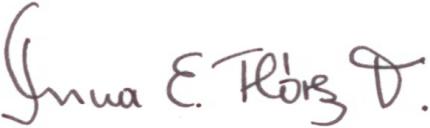 Inna E. Flórez D.